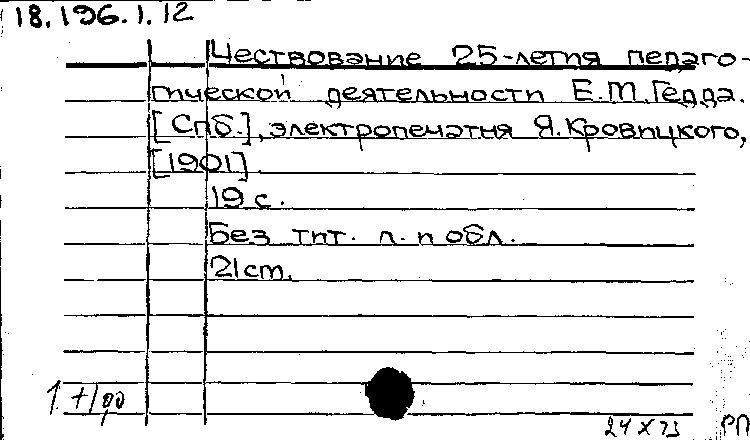 18.196.1.12
Чествование 25-летия педаго-
гической деятельности Е.М.Гедда.
[Спб.], электропечатня Я.Кровицкого,
[1901].
19 с.
Без тит. л. и обл.
21 cm.
24 X 73
РП